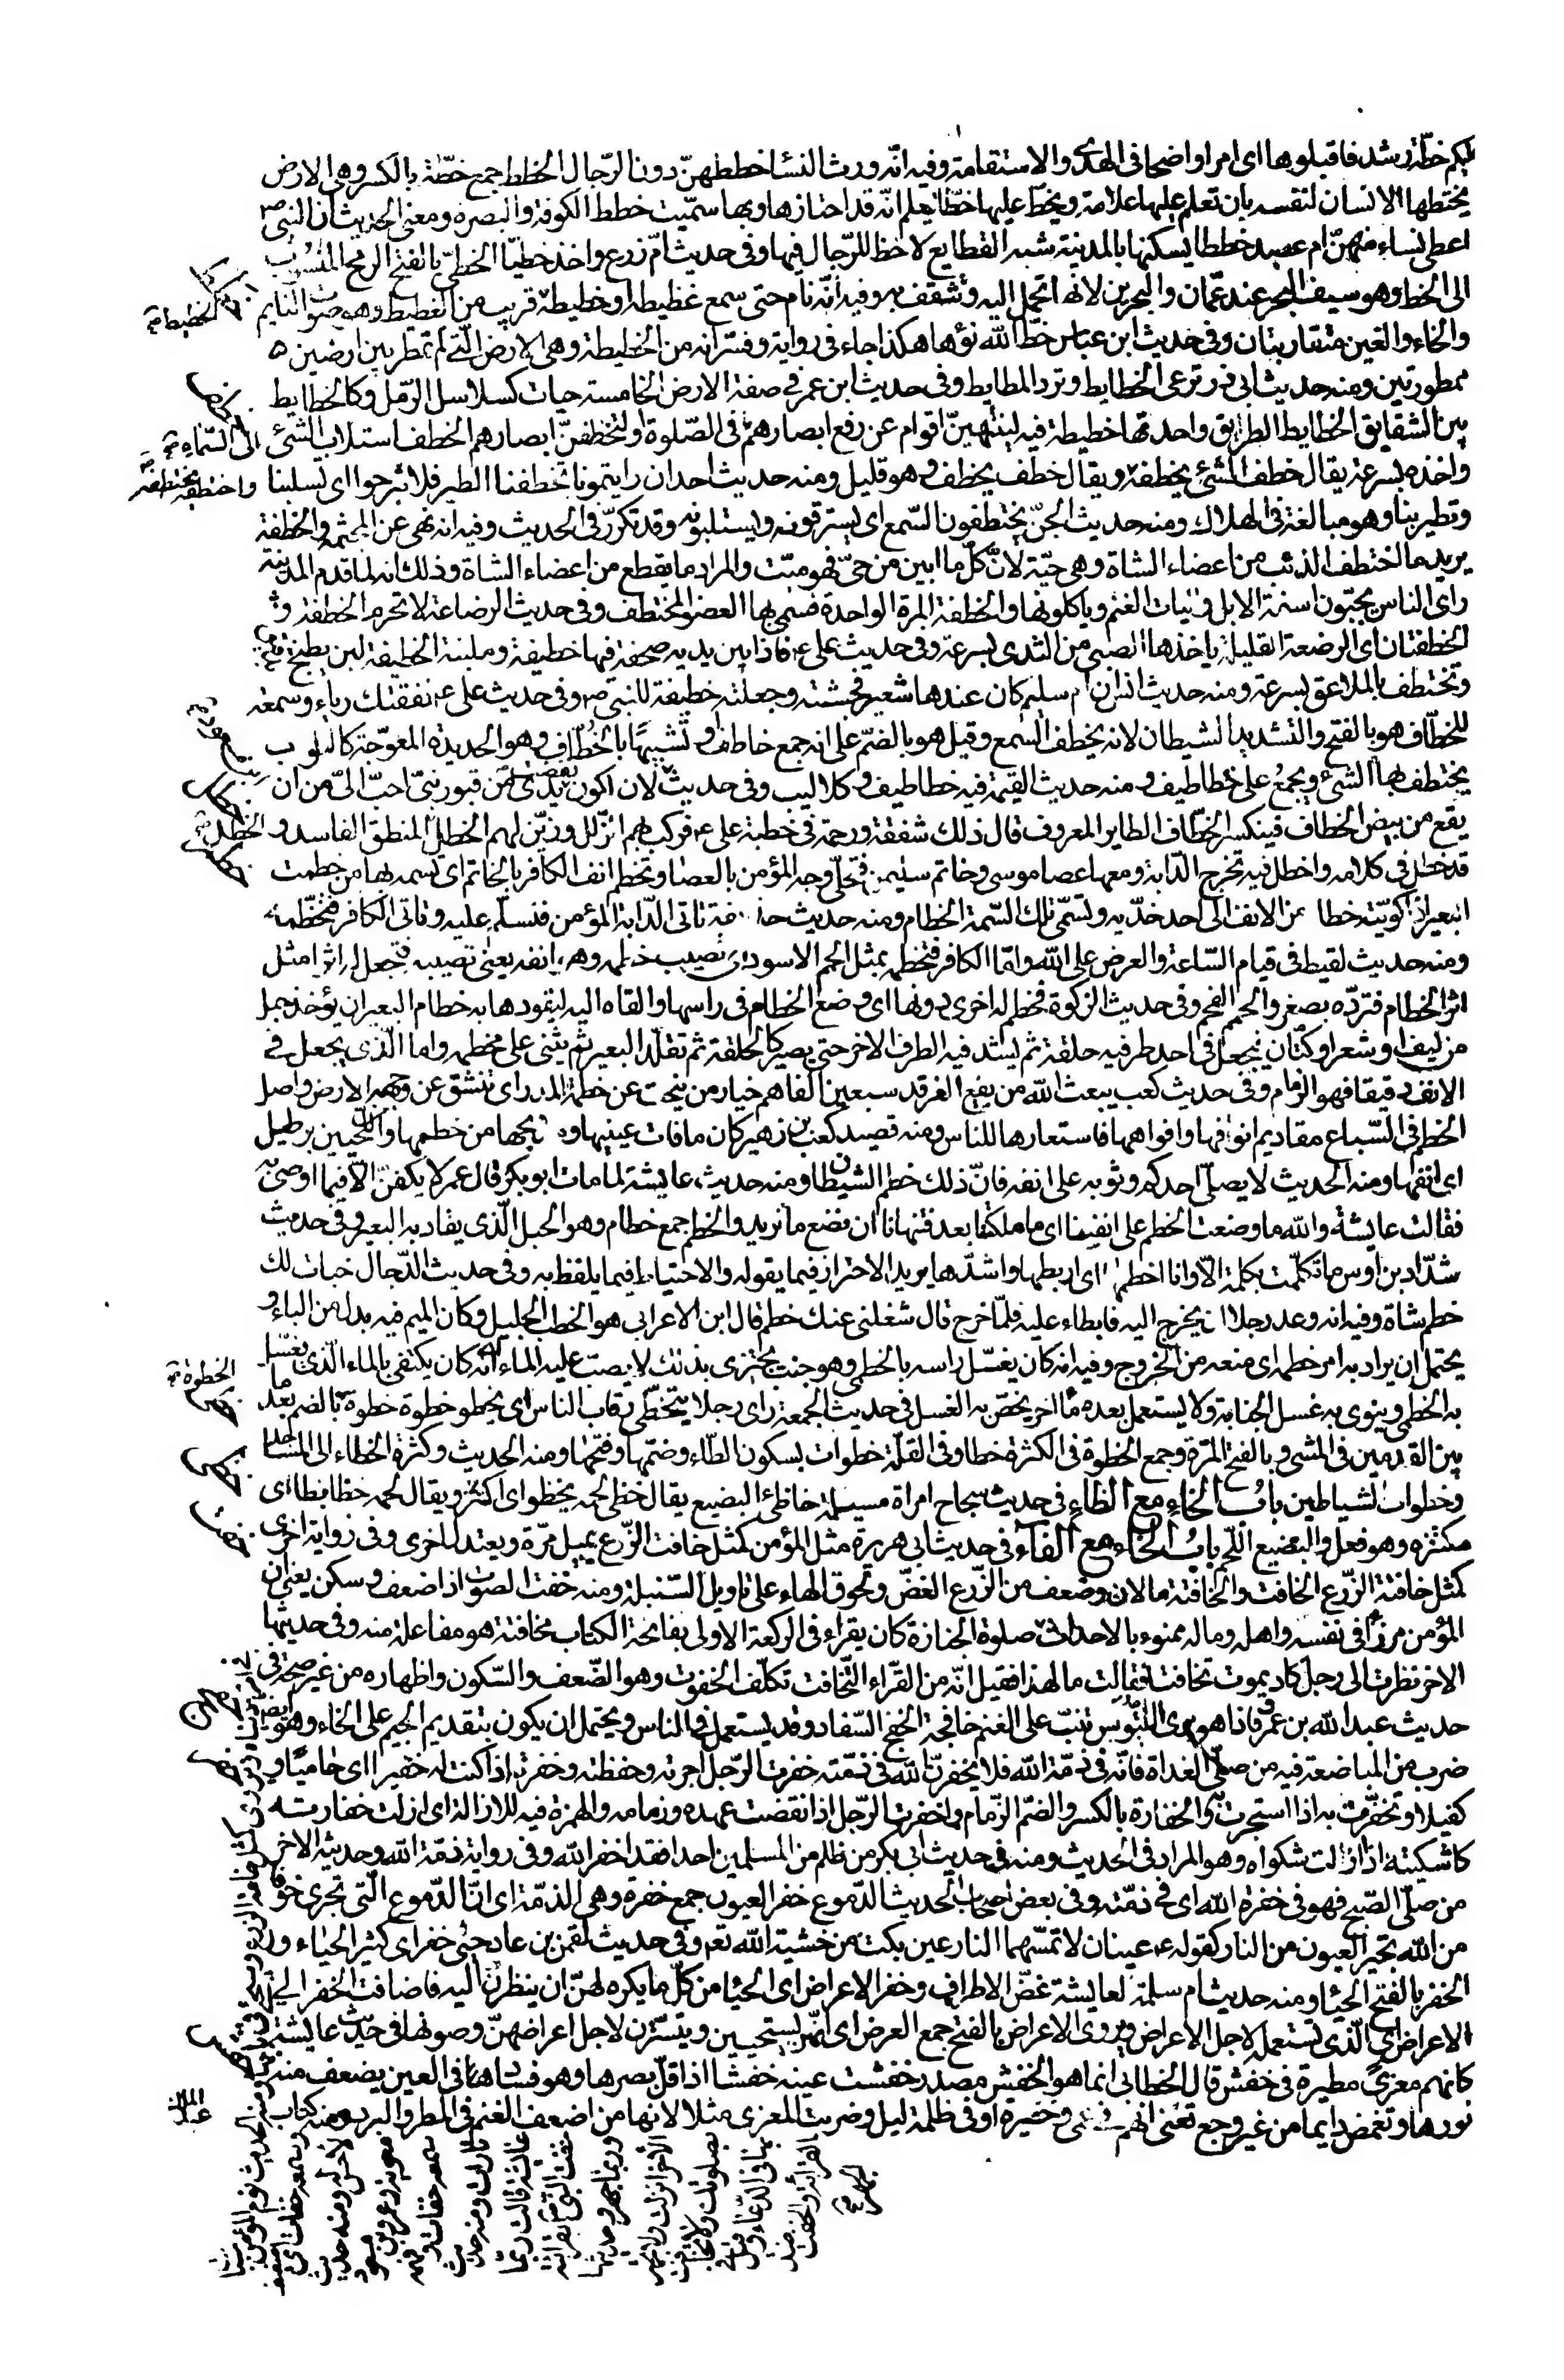 عليكم خطة رشد فاقبلوها اى امرا واضحا فى الهدى والاستقامة وفيه انه ورث النسا خططهن دون الرجال الخطط جمع خطة بالكسر وهى الارض
يختطها الانسان لنفسه بان تعلم عليها علامة ويخط عليها خطا ليعلم انه قد احتازها وبها سميت خطط الكوفة والبصرة ومعنى الحديث ان النبى ص
اعطى نساء منهن ام عبد خططا يسكنها بالمدينة شبه القطايع لا حظ للرجال فيها وفى حديث ام زرع واخذ خطيا الخطى بالفتح الرمح المنسوب
الى الخط وهو سيف البحر عند عمان والبحرين لانها تحمل اليه وتثقف به وفيه انه نام حتى سمع غطيطه او خطيطه قريب من الغطيط وهو صوت النايم
والخاء والغين متقاربتان وفى حديث ابن عباس خط الله نؤها هكذا جاء فى رواية وفسر انه من الخطيطة وهى الارض التى لم تمطر بين ارضين
ممطورتين ومنه حديث ابى ذر ترعى الخطايط وترد المطايط وفى حديث ابن عمر فى صفة الارض الخامسة حيات كسلاسل الرمل وكالخطايط
بين الشقايق الخطايط الطرايق واحدتها خطيطة فيه لينتهين اقوام عن رفع ابصارهم فى الصلوة او لتخطفن ابصارهم الخطف استلاب الشئ
واخذه بسرعة يقال خطف الشئ يخطفه ويقال خطف يخطف وهو قليل ومنه حديث احد ان رايتمونا تخطفنا الطير فلا تبرحوا اى تسلبنا
وتطير بنا وهو مبالغة فى الهلاك ومنه حديث الجن يختطفون السمع اى يسترقونه ويستلبونه وقد تكرر فى الحديث وفيه انه نهى عن المجثمة والخطفة
يريد ما اختطف الذئب من اعضاء الشاة وهى حية لان كل ما ابين من حى فهو ميت والمراد ما يقطع من اعضاء الشاة وذلك انه لما قدم المدينة
راى الناس يجبون اسنمة الابل واليات الغنم وياكلونها والخطفة المرة الواحدة فسمى بها العضو المختطف وفى حديث الرضاعة لا تحرم الخطفة و
الخطفتان اى الرضعة القليلة ياخذها الصبى من الثدى بسرعة وفى حديث على ع فاذا بين يديه صحفة فيها خطيفة وملبنة الخطيفة لبن يطبخ
وتختطف بالملاعق بسرعة ومنه حديث انس ان ام سليم كان عندها شعير فجشته وجعلته خطيفة للنبى ص وفى حديث على ع نفقتك رياء وسمعة
للخطاف هو بالفتح والتشديد الشيطان لانه يخطف السمع وقيل هو بالضم على انه جمع خاطف او تشبيها بالخطاف وهو الحديدة المعوجة كالكلوب
يختطف بها الشئ ويجمع على خطاطيف ومنه حديث القيمة فيه خطاطيف وكلاليب وفى حديث لان اكون نفضت يدى من قبور بنى احب الى من ان
يقع من بيض الخطاف فينكسر الخطاف الطاير المعروف قال ذلك شفقة ورحمة فى خطبة على ع فركب بهم الزلل وزين لهم الخطل المنطق الفاسد و
قد خطل فى كلامه واخطل فيه تخرج الدابة ومعها عصا موسى وخاتم سليمن فتحلى وجه المؤمن بالعصا وتخطم انف الكافر بالخاتم اى تسمه بها من خطمت
البعير اذا كويته خطا من الانف الى احد خديه وتسمى تلك السمة الخطام ومنه حديث حذيفة تاتى الدابة المؤمن فتسلم عليه وتاتى الكافر فتخطمه
ومنه حديث لقيط فى قيام الساعة والعرض على الله واما الكافر فتخطمه بمثل الحمم الاسود اى تصيب خطمه وهو انفه يعنى تصيبه فتجعل له اثرا مثل
اثر الخطام فترده بصغر والحمم الفحم وفى حديث الزكوة فخطم له اخرى دونها اى وضع الخطام فى راسها والقاه اليه ليقودها به خطام البعير ان يؤخذ حبل
من ليف او شعر او كتان فيجعل فى احد طرفيه حلقة ثم يشد فيه الطرف الاخر حتى يصير كالحلقة ثم تقلد البعير ثم يثنى على مخطمه واما الذى يجعل فى
الانف دقيقا فهو الزمام وفى حديث كعب يبعث الله من بقيع الغرقد سبعين الفا هم خيار من ينحت عن خطمه المدر اى تنشق عن وجهه الارض واصل
الخطم فى السباع مقاديم انوفها وافواهها فاستعارها للناس ومنه قصيد كعب بن زهير كان ما فات عينيها ومذبحها من خطمها وا للحيين برطيل
اى انفها ومنه الحديث لا يصلى احدكم وثوبه على انفه فان ذلك خطم الشيطان ومنه حديث عايشة لما مات ابو بكر قال عمر لا يكفن الا فيما اوصى به
فقالت عايشة والله ما وضعت الخطم على انفنا اى ما ملكتنا بعد فتنهانا ان نضع ما نريد والخطم جمع خطام وهو الحبل الذى يقاد به البعير وفى حديث
شداد بن اوس ما تكلمت بكلمة الا وانا اخطمها اى اربطها واشدها يريد الاحتراز فيما يقوله والاحتياط فيما يلفظ به وفى حديث الدجال خبات لك
خطم شاة وفيه انه وعد رجلا ان يخرج اليه فابطاء عليه فلما خرج قال شغلنى عنك خطم قال ابن الاعرابى هو الخطب الجليل وكان الميم فيه بدل من الباء و
يحتمل ان يراد به امر خطمه اى منعه من الخروج وفيه انه كان يغسل راسه بالخطمى وهو جنب يجتزى بذلك لا يصب عليه الماء اى انه كان يكتفى بالماء الذى يغسل
به الخطمى وينوى به غسل الجنابة ولا يستعمل بعده ماء اخر يخص به الغسل فى حديث الجمعة راى رجلا يتخطى رقاب الناس اى يخطو خطوة خطوة بالضم بعد ما
بين القدمين فى المشى وبالفتح المرة وجمع الخطوة فى الكثرة خطا وفى القلة خطوات بسكون الطاء وضمها وفتحها ومنه الحديث وكثرة الخطاء الى المساجد
وخطوات الشياطين باب الخاء مع الظاء فى حديث سجاح امراة مسيلمة خاظى البضيع يقال خظى لحمه يخظو اى اكتنز ويقال لحمه خظا بظا اى
مكتنزه وهو فعل والبضيع اللحم باب الخاء مع الفاء فى حديث ابى هريرة مثل المؤمن كمثل خافت الزرع يميل مرة ويعتدل اخرى وفى رواية اخرى
كمثل خافتة الزرع الخافت والخافتة ما لان وضعف من الزرع الغض ولحوق الهاء على تاويل السنبلة ومنه خفت الصوت اذا ضعف وسكن يعنى ان
المؤمن مرزأ فى نفسه واهله وماله ممنوء بالاحداث صلوة الجنازة كان يقراء فى الركعة الاولى بفاتحة الكتاب مخافتة هو مفاعلة منه وفى حديثها
الاخر نظرت الى رجل كاد يموت تخافتا فقالت ما لهذا فقيل انه من القراء التخافت تكلف الخفوت وهو الضعف والسكون واظهاره من غير صحة فى
حديث عبد الله بن عمر فاذا هو يرى التيوس تنب على الغنم خافجة الخفج السفاد وقد يستعمل فى الناس ويحتمل ان يكون بتقديم الجيم على الخاء وهو ايضا
ضرب من المباضعة فيه من صلى الغداة فانه فى ذمة الله فلا يخفرن الله فى ذمته خفرت الرجل اجرته وحفظته وخفرته اذا كنت له خفيرا اى حاميا و
كفيلا وتخفرت به اذا استجرت به والخفارة بالكسر والضم الذمام واخفرت الرجل اذا نقضت عهده وذمامه والهمزة فيه للازالة اى ازلت خفارته
كاشكيته اذا ازلت شكواه وهو المراد فى الحديث ومنه فى حديث ابى بكر من ظلم من المسلمين احدا فقد اخفر الله وفى رواية ذمة الله وحديثه الاخر
من صلى الصبح فهو فى خفرة الله اى فى ذمته وفى بعض الحديث الدموع خفر العيون جمع خفرة وهى الذمة اى ان الدموع التى تجرى خوفا
من الله تجير العيون من النار كقوله ع عينان لا تمسهما النار عين بكت من خشية الله تعم وفى حديث لقمن بن عاد حيى خفر اى كثير الحياء و
الخفر بالفتح الحياء ومنه حديث ام سلمة لعايشة غض الاطراف وخفر الاعراض اى الحيا من كل ما يكره لهن ان ينظرن اليه فاضافت الخفر الى
الاعراض اى الذى تستعمل لاجل الاعراض ويروى الاعراض بالفتح جمع العرض اى انهن يستحيين ويتسترن لاجل اعراضهن وصونها فى حديث عايشة
كانهم معزى مطيرة فى خفش قال الخطابى انما هو الخفش مصدر خفشت عينه خفشا اذا قل بصرها وهو فساد فى العين يضعف منه
نورها وتغمض دايما من غير وجع تعنى انهم فى عمى وحيرة او فى ظلمة ليل وضربت المعزى مثلا لانها من اضعف الغنم فى المطر والبرد ومنه كتاب
عبد الملك
الخطيطة
الى السماء
واختطفه يختطفه
الخطوة